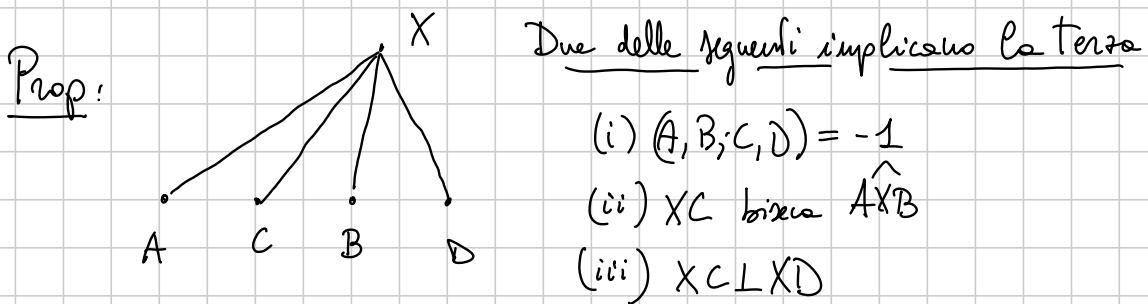 Prop:
X
A C B D
Due delle seguenti implicano la terza
(i) (A,B;C,D) = -1
(ii) XC biseca AX̂B
(iii) XC⊥XD